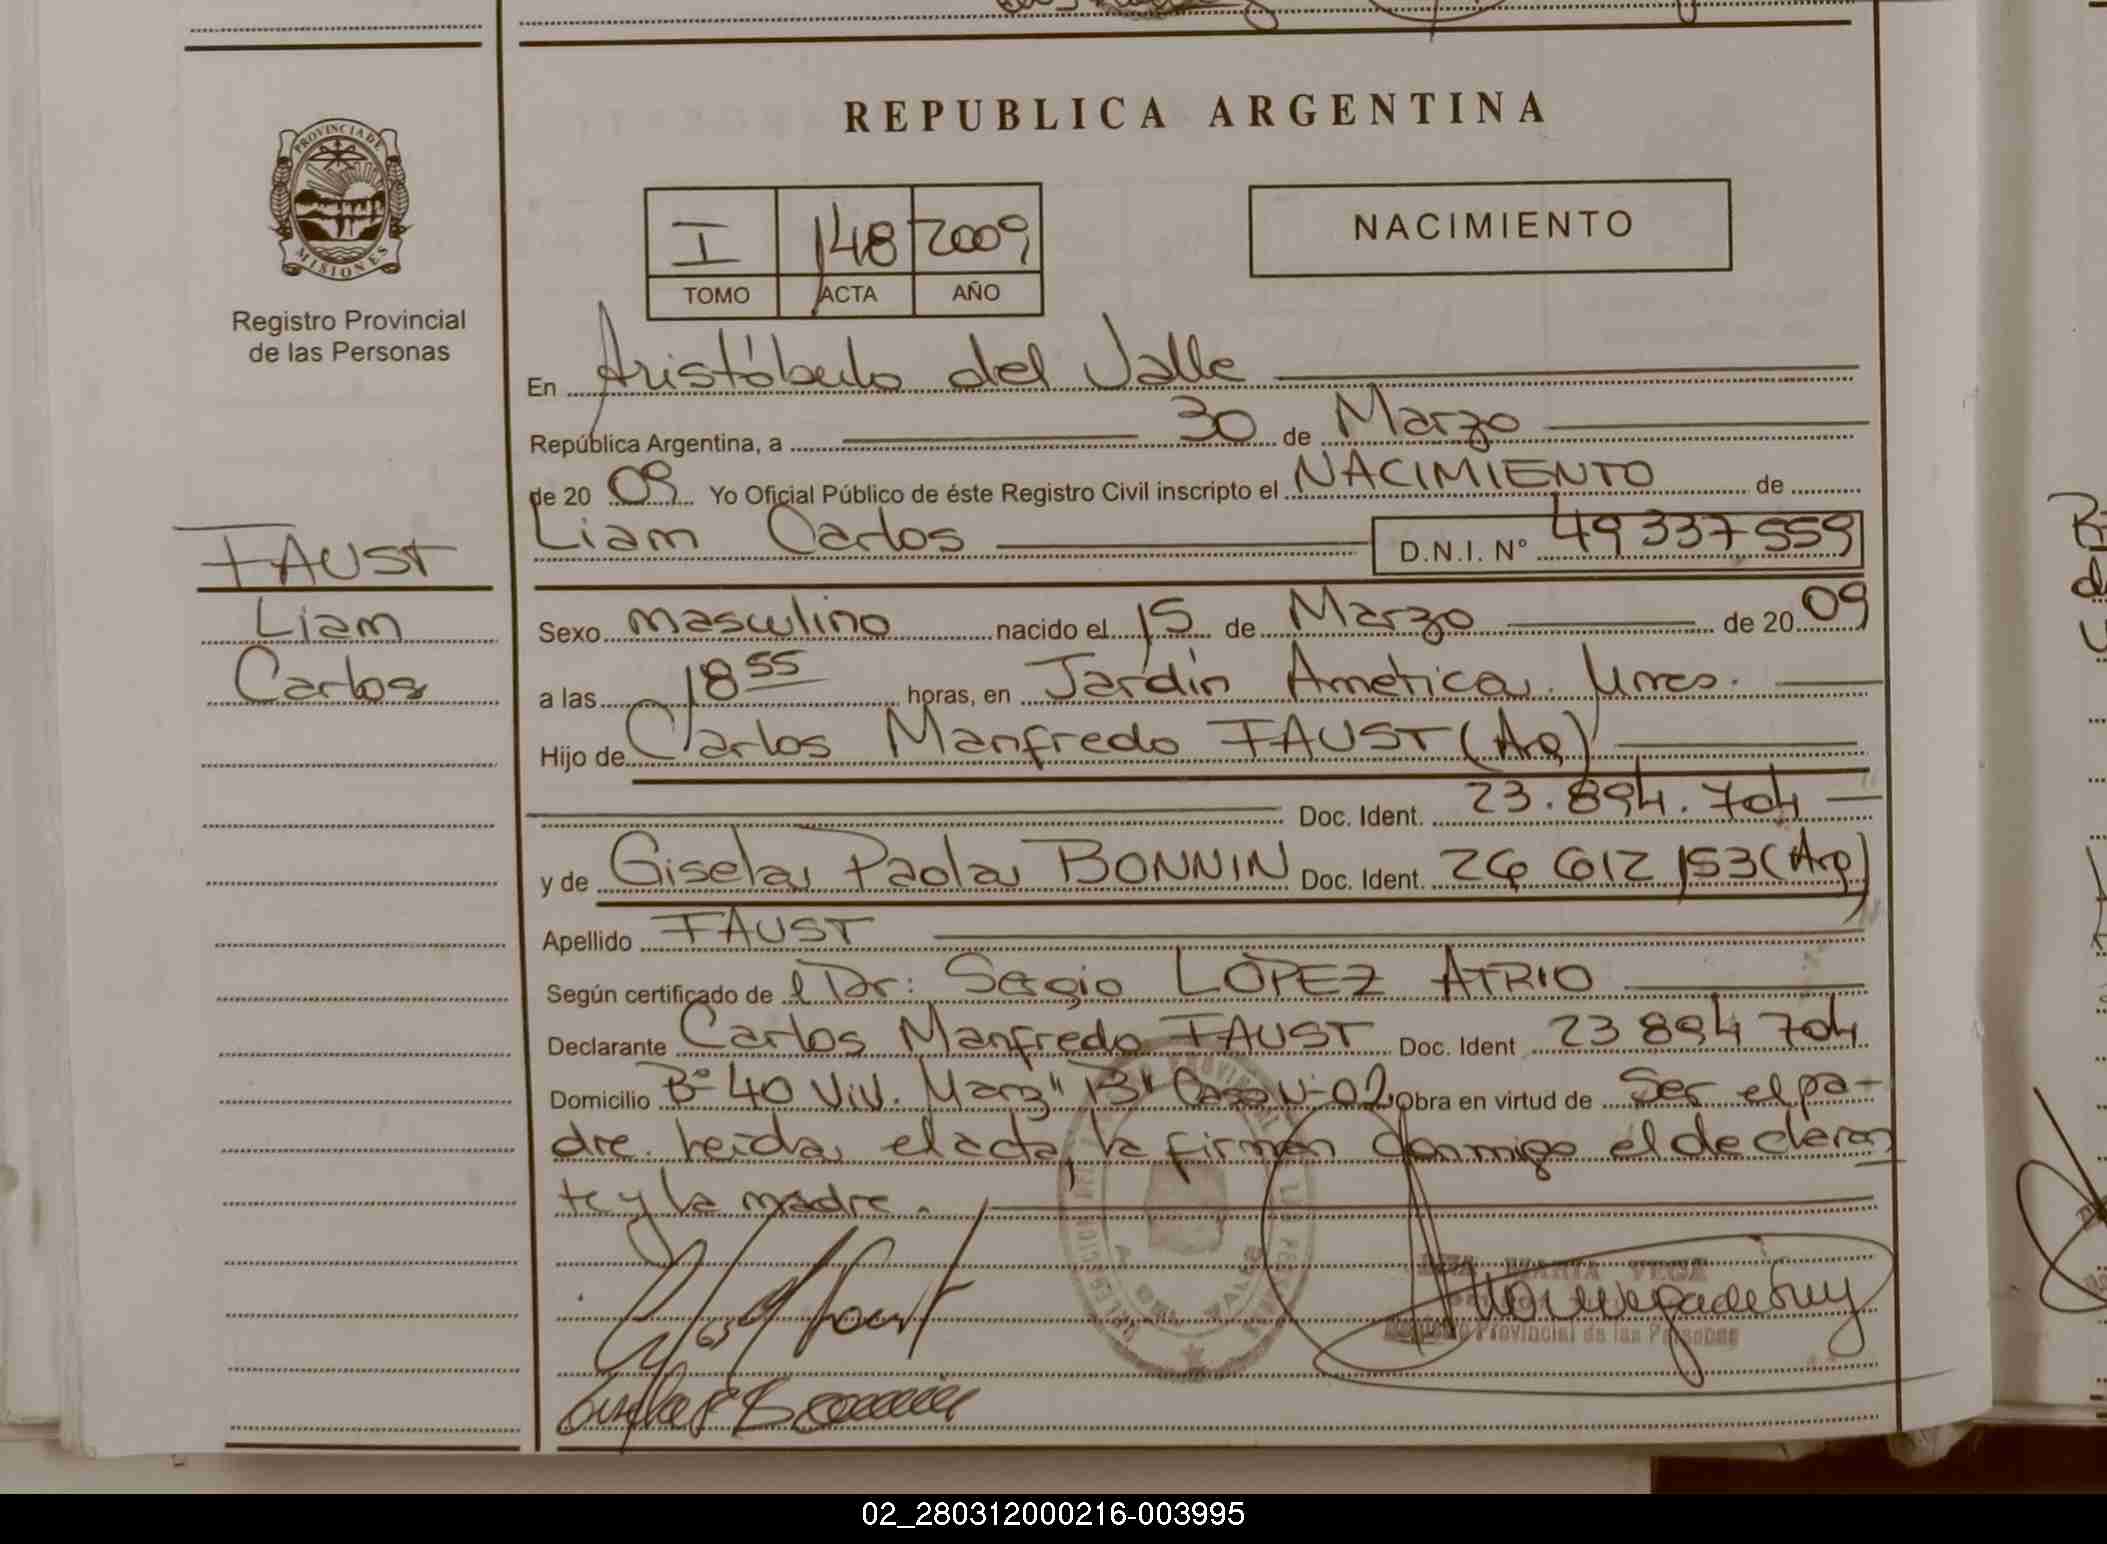 REPUBLICA ARGENTINA
PROVINCIA DE
MISIONES
Registro Provincial
de las Personas
I 148 2009
TOMO ACTA AÑO
NACIMIENTO
En Aristóbulo del Valle
República Argentina, a 30 de Marzo
de 20 09 Yo Oficial Público de éste Registro Civil inscripto el NACIMIENTO de
Liam Carlos D.N.I. Nº 49337559
FAUST
Liam
Carlos
Sexo masculino nacido el 15 de Marzo de 20 09
a las 18 55 horas, en Jardín America
Hijo de Carlos Manfredo FAUST (Arg)
Doc. Ident. 23.894.704
y de Gisela Paola BONNIN Doc. Ident. 26 612 153 (Arg)
Apellido FAUST
Según certificado de el Dr: Sergio LOPEZ ATRIO
Declarante Carlos Manfredo FAUST Doc. Ident 23 894 704
Domicilio Bº 40 Viv. Manz "B" Casa Nº 02 Obra en virtud de Ser el pa-
dre. Leida el acta, la firman conmigo el declaran
te y la madre.
MARIA VEGA
Registro Provincial de las Personas
02_280312000216-003995